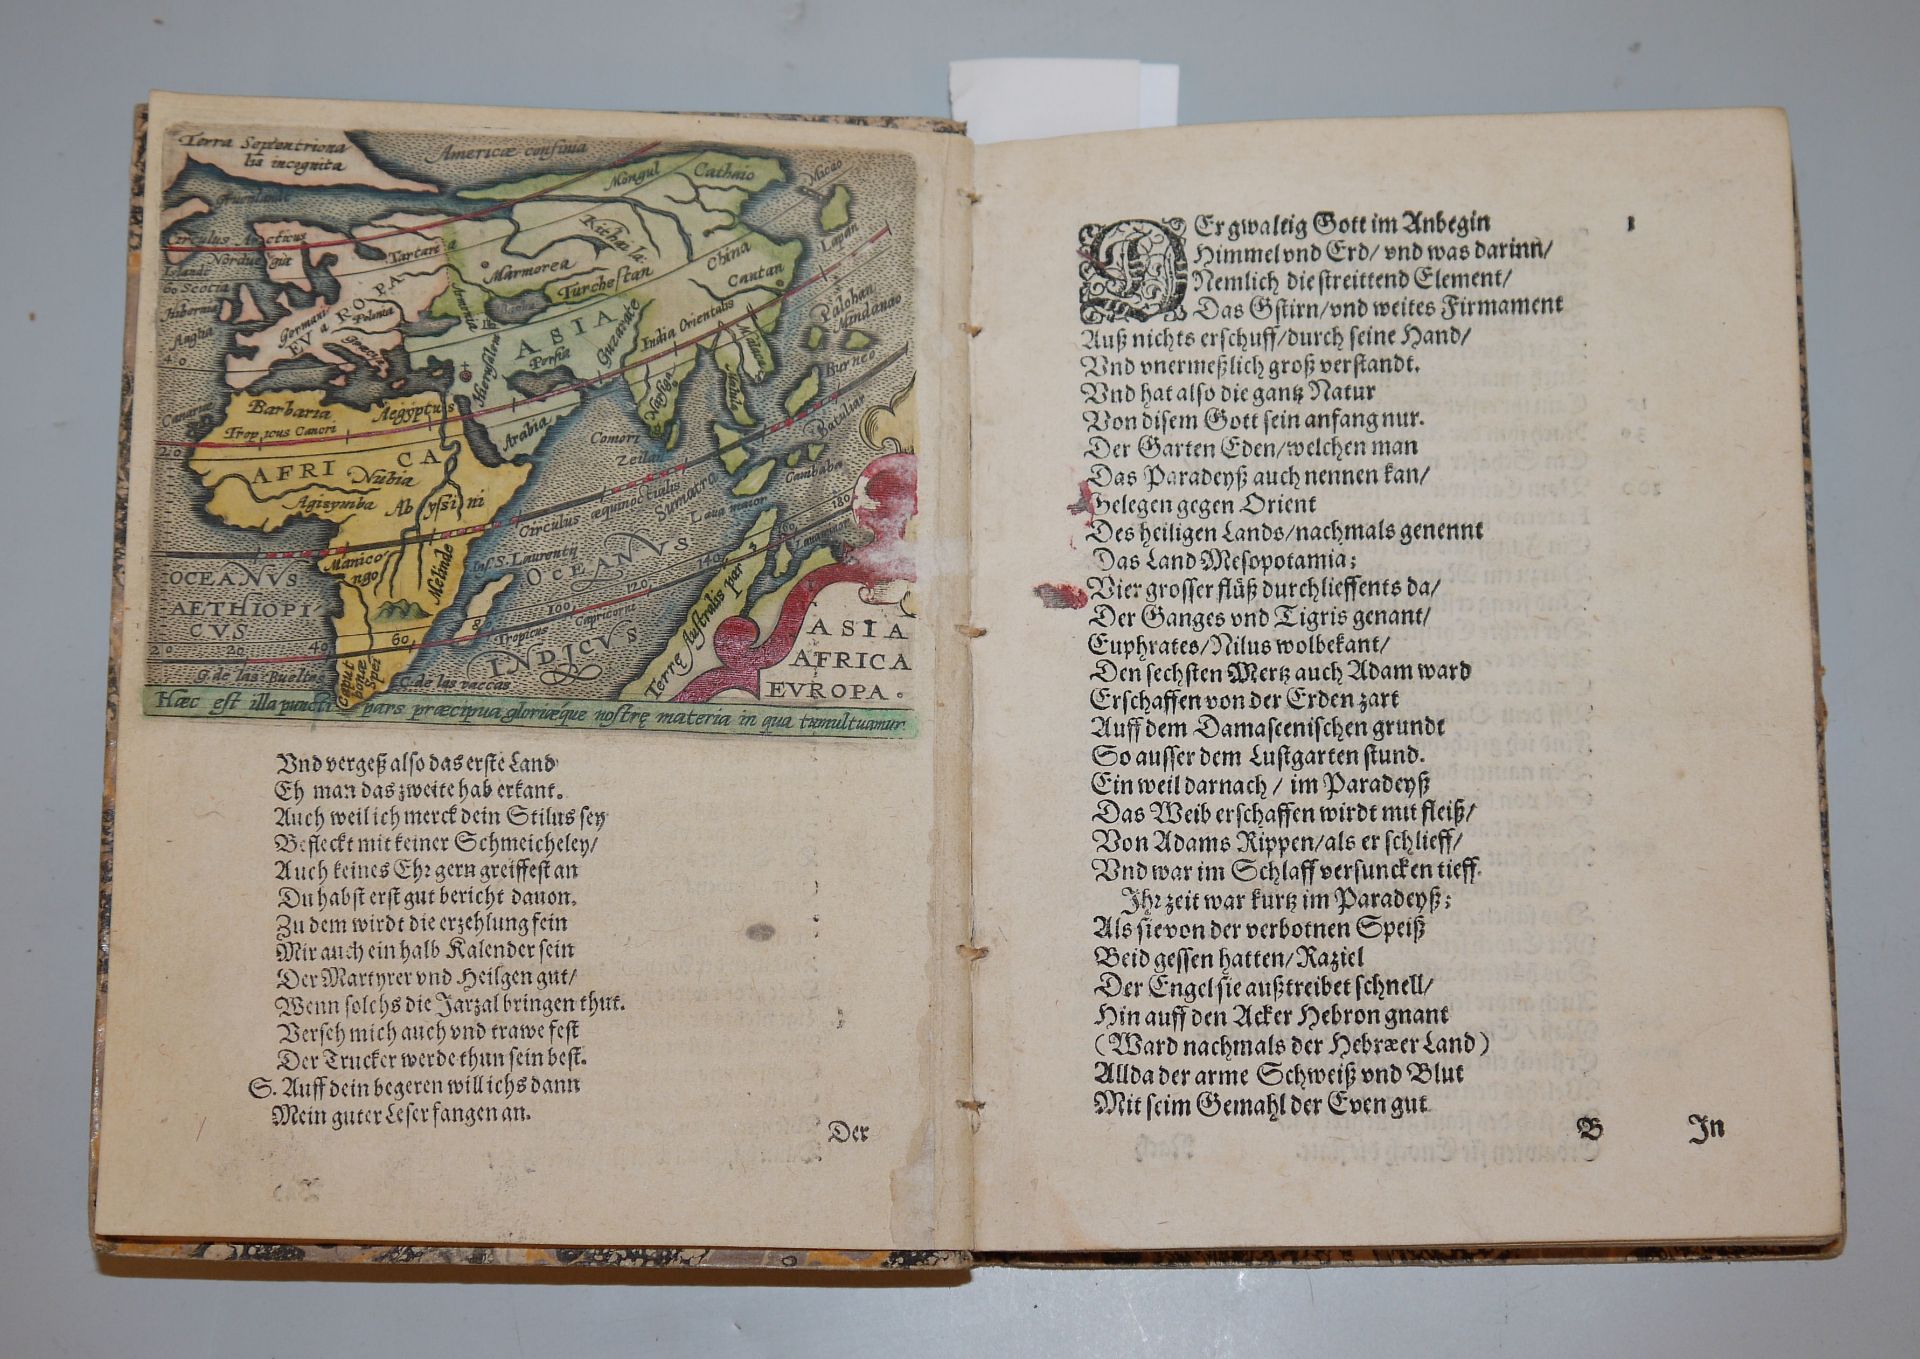 Terra Septentriona
lis incognita
Americæ confinia
Mongul
Cathaio
Macao
Iapan
Circulus Arcticus
Tartaria
Nordue giæ
Islande
60 Scotia
Hibernia
Anglia
Marmorea
Kithaila
Turchestan
China
Cantan
Palohan
Mindanao
EVROPA
Germani a
Polonia
Græcia
Armenia
ASIA
Persia
Guzarate
India Orientalis
Malaca
Burneo
Hierusalem
40
Canariæ
Barbaria
Aegÿptus
Tropicus Cancri
Arabia
Narsiga
Comori
Zeilan
20
AFRICA
Nubia
Agisymba
Abyssini
Circulus æquinoctialis
Sumatra
Iaua maior
Cambaba
180
160
140
120
100
80
60
40
20
20
Manicongo
Melinde
Ins. S. Laurentij
OCEANVS
AETHIOPI
CVS
OCEANVS
INDICVS
Tropicus Capricorni
Terrę Australis pars
G. de las Bueltas
Caput bonæ Spei
C. de las vaccas
ASIA
AFRICA
EVROPA.
Hæc est illa puncti pars præcipua gloriæque nostrę materia in qua tumultuamur
Vnd vergeß also das erste Land
Eh man das zweite hab erkant.
Auch weil ich merck dein Stilus sey
Befleckt mit keiner Schmeicheley/
Auch keines Ehr gern greiffest an
Du habst erst gut bericht dauon.
Zu dem wirdt die erzehlung fein
Mir auch ein halb Kalender sein
Der Martyrer vnd Heilgen gut/
Wenn solchs die Jarzal bringen thut.
Versch mich auch vnd trawe fest
Der Trucker werde thun sein best.
S. Auff dein begeren will ichs dann
Mein guter Leser fangen an.
Der
1
DEr gwaltig Gott im Anbegin
Himmel vnd Erd/ vnd was darinn/
Nemlich die streittend Element/
Das Gstirn/ vnd weites Firmament
Auß nichts erschuff/ durch seine Hand/
Vnd vnermeßlich groß verstandt.
Vnd hat also die gantz Natur
Von disem Gott sein anfang nur.
Der Garten Eden/ welchen man
Das Paradeyß auch nennen kan/
Gelegen gegen Orient
Des heiligen Lands/ nachmals genennt
Das Land Mesopotamia;
Vier grosser flüß durchlieffents da/
Der Ganges vnd Tigris genant/
Euphrates/ Nilus wolbekant/
Den sechsten Mertz auch Adam ward
Erschaffen von der Erden zart
Auff dem Damascenischen grunt
So ausser dem Lustgarten stund.
Ein weil darnach/ im Paradeyß
Das Weib erschaffen wirdt mit fleiß/
Von Adams Rippen/ als er schlieff/
Vnd war im Schlaff versuncken tieff.
Ihr zeit war kurtz im Paradeyß;
Als sie von der verbotnen Speiß
Beid gessen hatten/ Raziel
Der Engel sie außtreibet schnell/
Hin auff den Acker Hebron gnant
(Ward nachmals der Hebræer Land)
Allda der arme Schweiß vnd Blut
Mit seim Gemahl der Even gut
B
In